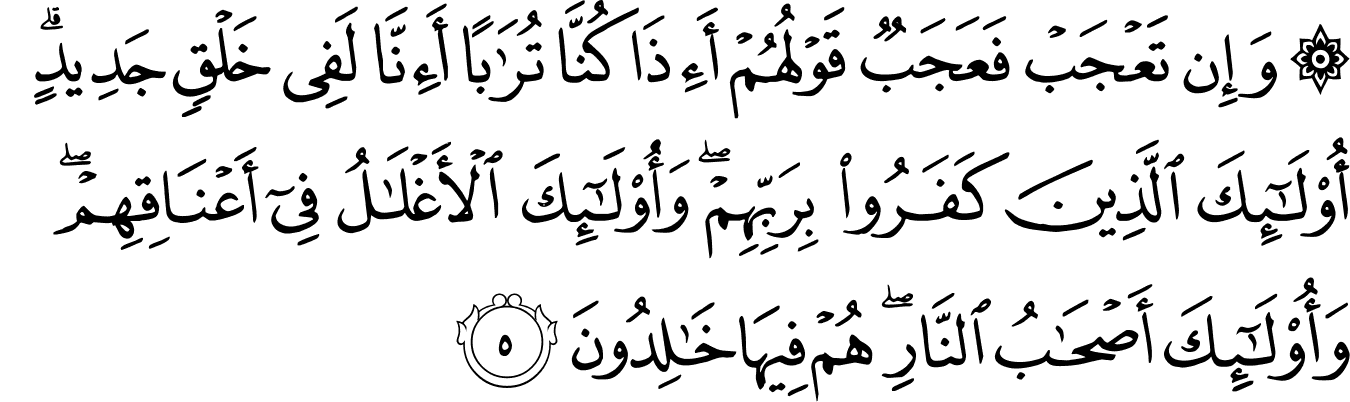 ۞ وَإِن تَعۡجَبۡ فَعَجَبٞ قَوۡلُهُمۡ أَءِذَا كُنَّا تُرَٰبًا أَءِنَّا لَفِي خَلۡقٖ جَدِيدٍۗ
أُوْلَٰٓئِكَ ٱلَّذِينَ كَفَرُواْ بِرَبِّهِمۡۖ وَأُوْلَٰٓئِكَ ٱلۡأَغۡلَٰلُ فِيٓ أَعۡنَاقِهِمۡۖ
وَأُوْلَٰٓئِكَ أَصۡحَٰبُ ٱلنَّارِۖ هُمۡ فِيهَا خَٰلِدُونَ ٥